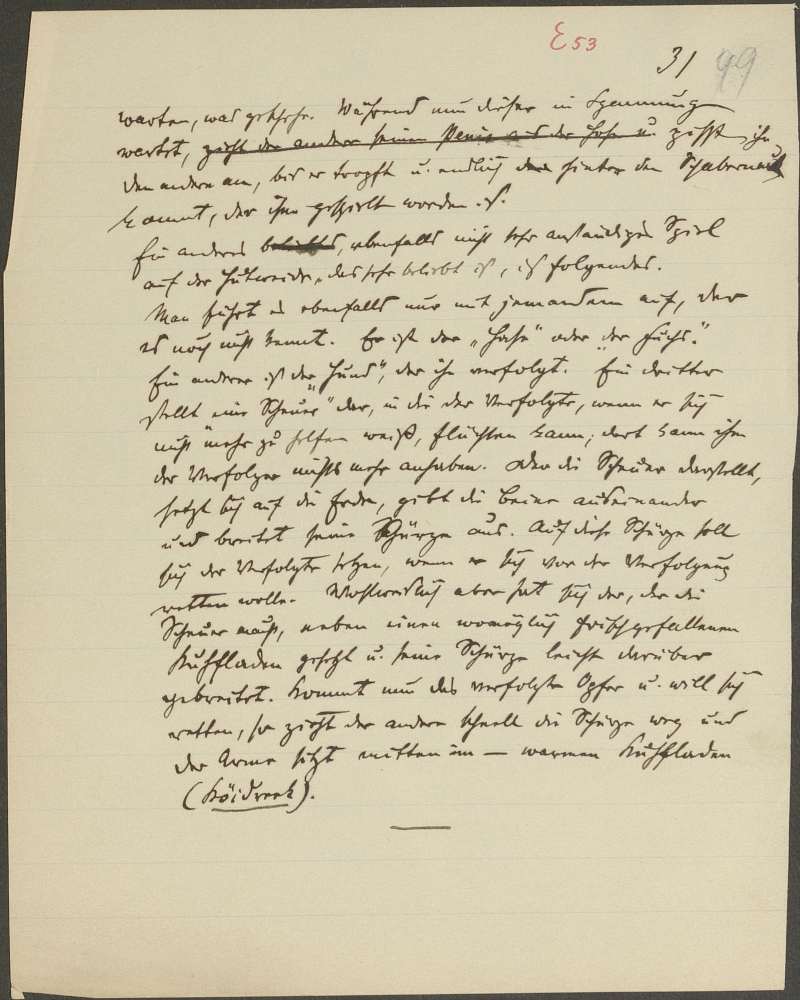 E 53
31 99
warten, was geschehe. Während nun dieser in Spannung
wartet, zieht der andere seinen Penis aus der Hose u. pisst ihn
den andern an, bis er tropft u. endlich hinter den Schabernack
kommt, der ihm gespielt worden ist.
Ein anderes beliebtes, ebenfalls nicht sehr anständiges Spiel
auf der Hutweide, das sehr beliebt ist, ist folgendes.
Man führt es ebenfalls nur mit jemandem auf, der
es noch nicht kennt. Er ist der „Hase“ oder „der Fuchs“.
Ein anderer ist der „Hund“, der ihn verfolgt. Ein dritter
stellt eine „Scheuer“ dar, in die der Verfolgte, wenn er sich
nicht mehr zu helfen weiß, flüchten kann; dort kann ihm
der Verfolger nichts mehr anhaben. Der die Scheuer darstellt,
setzt sich auf die Erde, gibt die Beine auseinander
und breitet seine Schürze aus. Auf diese Schürze soll
sich der Verfolgte setzen, wenn er sich vor der Verfolgung
retten wolle. Wohlweislich aber hat sich der, der die
Scheuer macht, neben einen womöglich frischgefallenen
Kuhfladen gesetzt u. seine Schürze leicht darüber
gebreitet. Kommt nun das verfolgte Opfer u. will sich
retten, so zieht der andere schnell die Schürze weg und
der Arme sitzt mitten im — warmen Kuhfladen
(Köidreek).